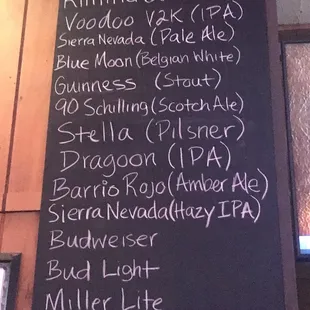 Voodoo V2K (IPA)
Sierra Nevada (Pale Ale)
Blue Moon (Belgian White)
Guinness (Stout)
90 Schilling (Scotch Ale)
Stella (Pilsner)
Dragoon (IPA)
Barrio Rojo (Amber Ale)
Sierra Nevada (Hazy IPA)
Budweiser
Bud Light
Miller Lite